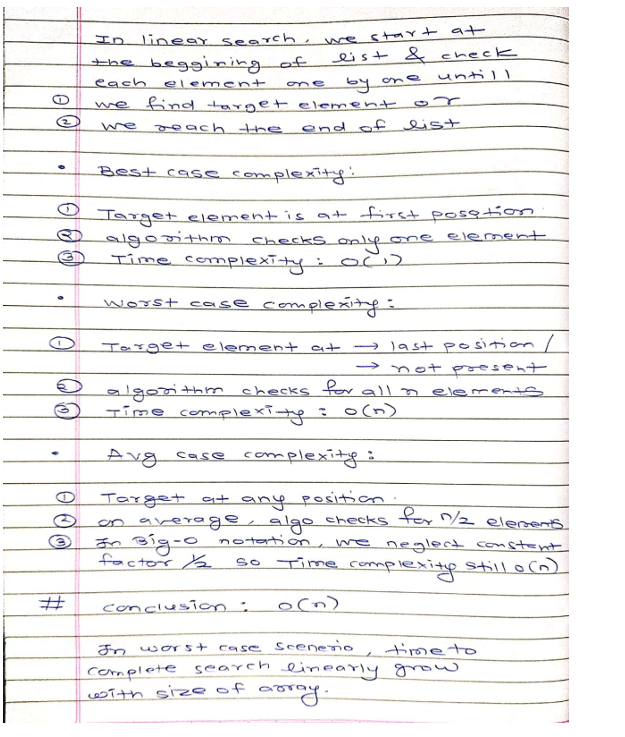 In linear search, we start at
the beggining of list & check
each element one by one untill
① we find target element or
② we reach the end of list
• Best case complexity:
① Target element is at first position
② algorithm checks only one element
③ Time complexity : O(1)
• Worst case complexity :
① Target element at → last position /
→ not present
② algorithm checks for all n elements
③ Time complexity : O(n)
• Avg case complexity :
① Target at any position.
② on average, algo checks for n/2 elements
③ In Big-O notation, we neglect constant
factor 1/2 so Time complexity still O(n)
# conclusion : O(n)
In worst case scenerio, time to
complete search linearly grow
with size of array.